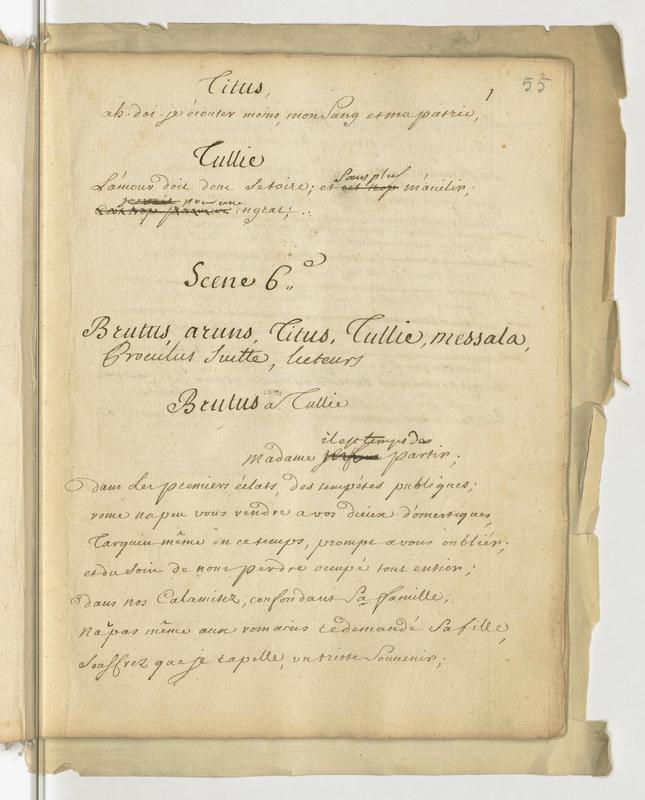 55
1
Titus,
ah. doi-je écouter moins, mon Sang et ma patrie,
Tullie
L'amour doit donc Se taire; et Sans plus m'avilir;
ingrat; ..
Scene 6.e
Brutus, aruns, Titus, Tullie, messala,
Proculus Suitte, licteurs
Brutus a Tullie
il est temps de
madame partir;
dans Les premiers éclats, des tempêtes publiques;
rome na peu vous rendre a vos dieux d'omestiques,
Tarquin même en ce temps, prompt a vous oublier;
et du Soin de nous perdre ocupé tout entier;
dans nos Calamitez, confondant Sa famille;
na pas même aux romains redemandé Sa fille,
Souffrez que je rapelle, un triste Souvenir;